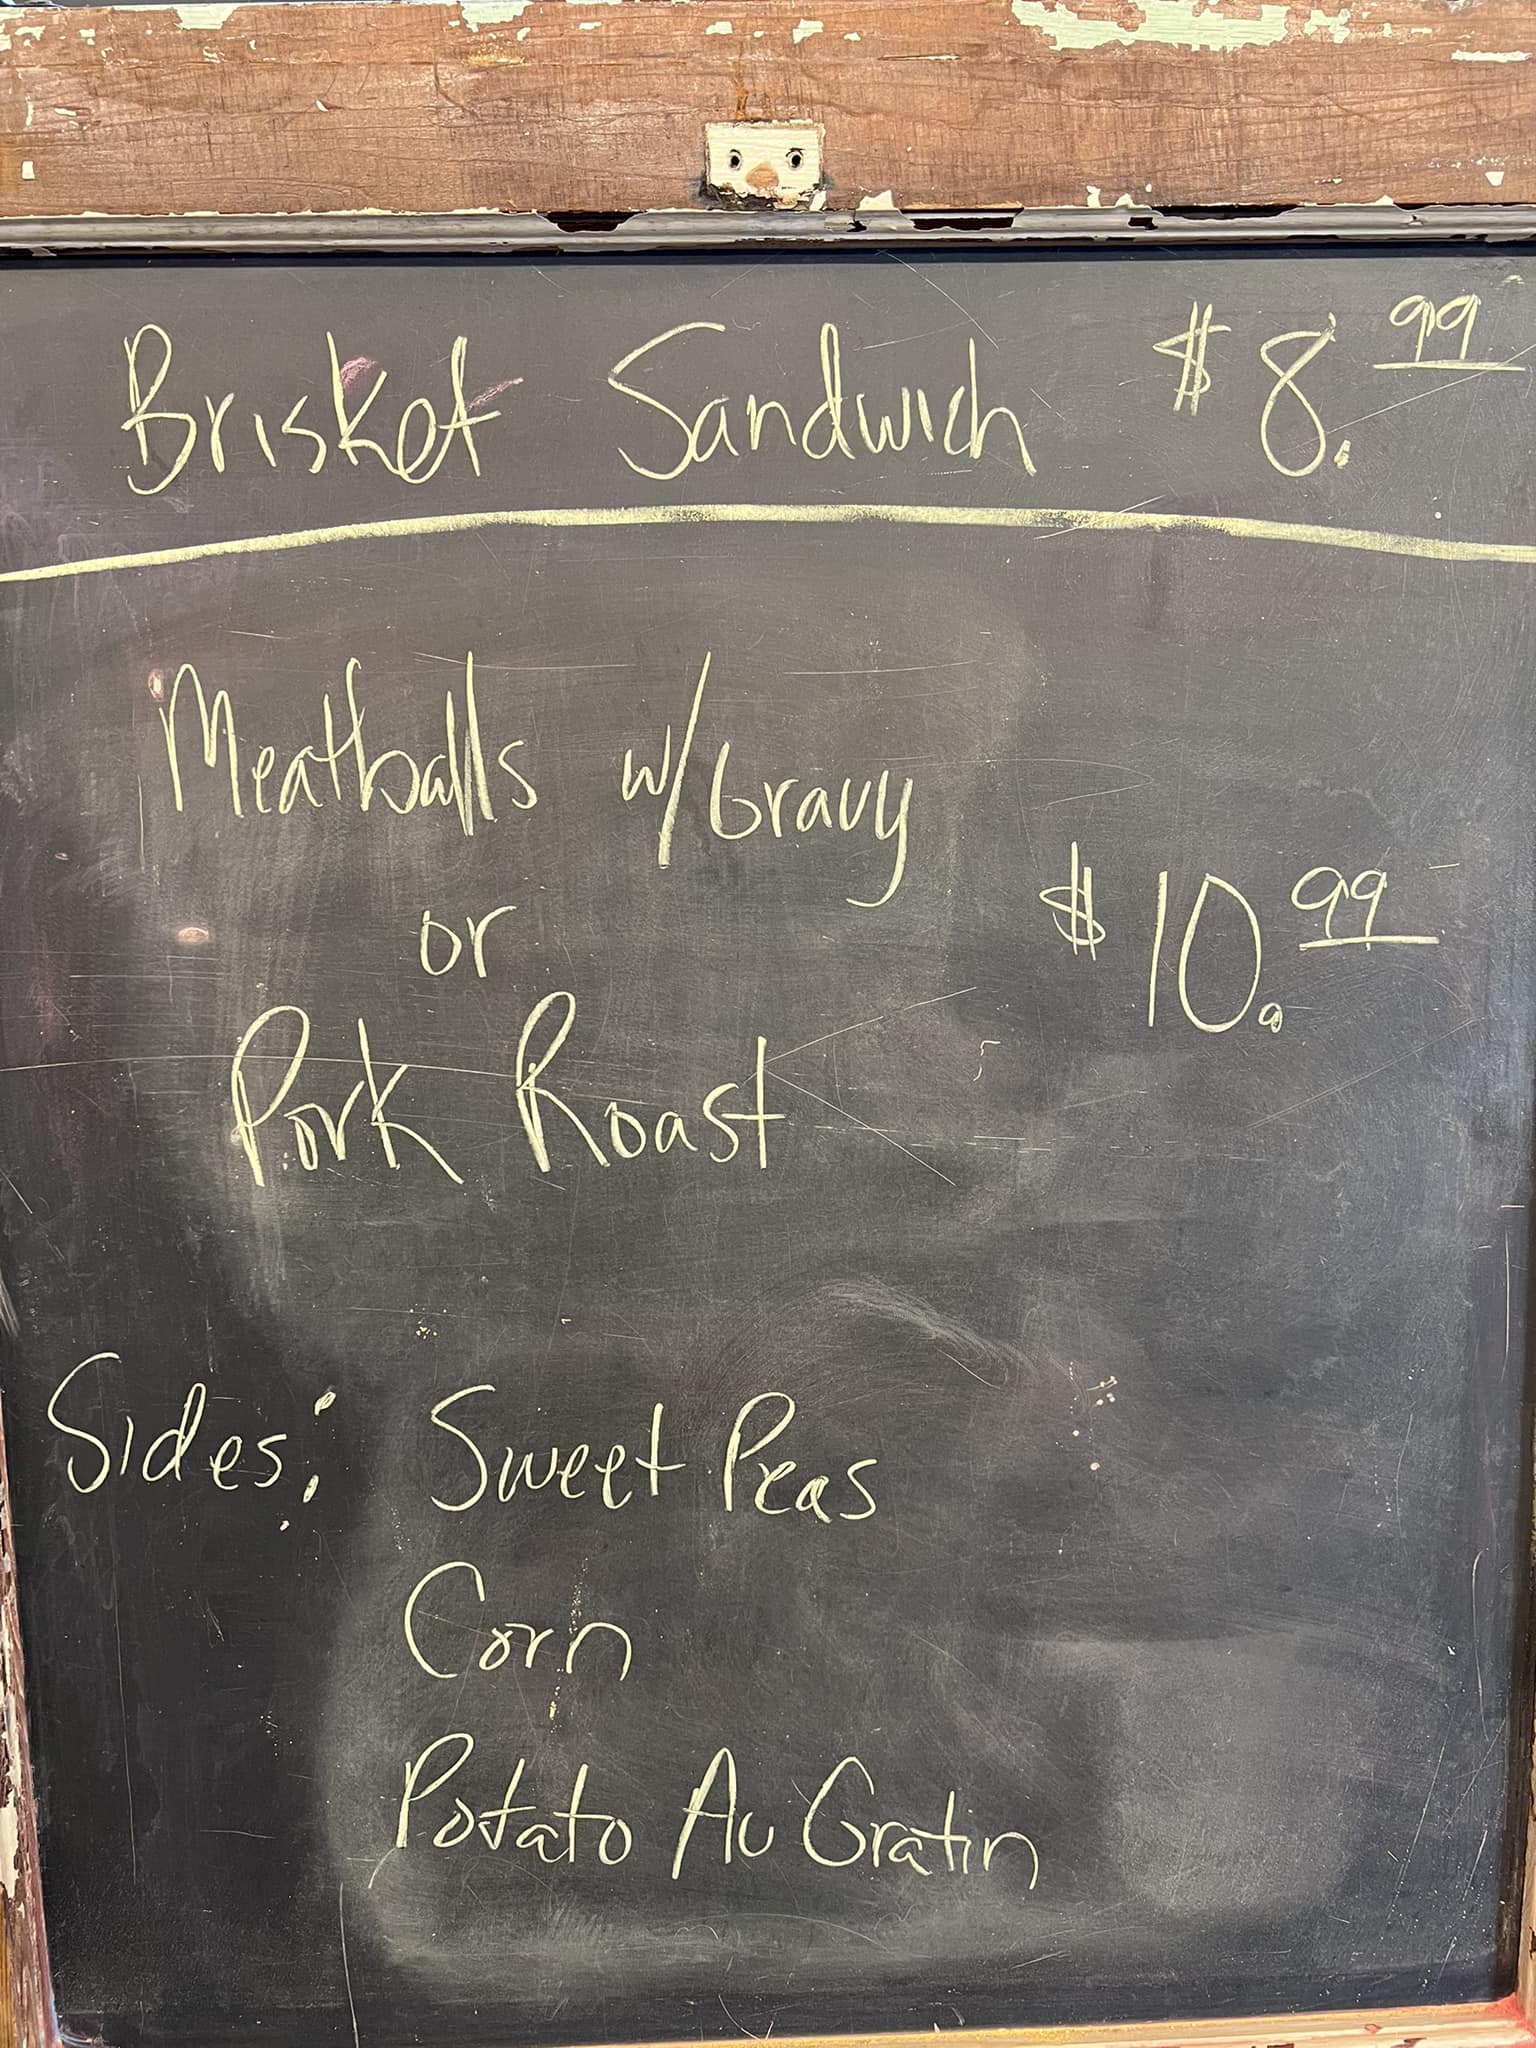 Brisket Sandwich $8.99
Meatballs w/Gravy
or
$10.99
Pork Roast
Sides: Sweet Peas
Corn
Potato Au Gratin